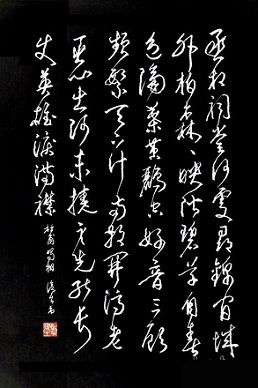 丞相祠堂何處尋錦官城
外柏森森映階碧草自春
色隔葉黃鸝空好音三顧
頻繁天下計兩朝開濟老
臣心出師未捷身先死長
使英雄淚滿襟 杜甫蜀相